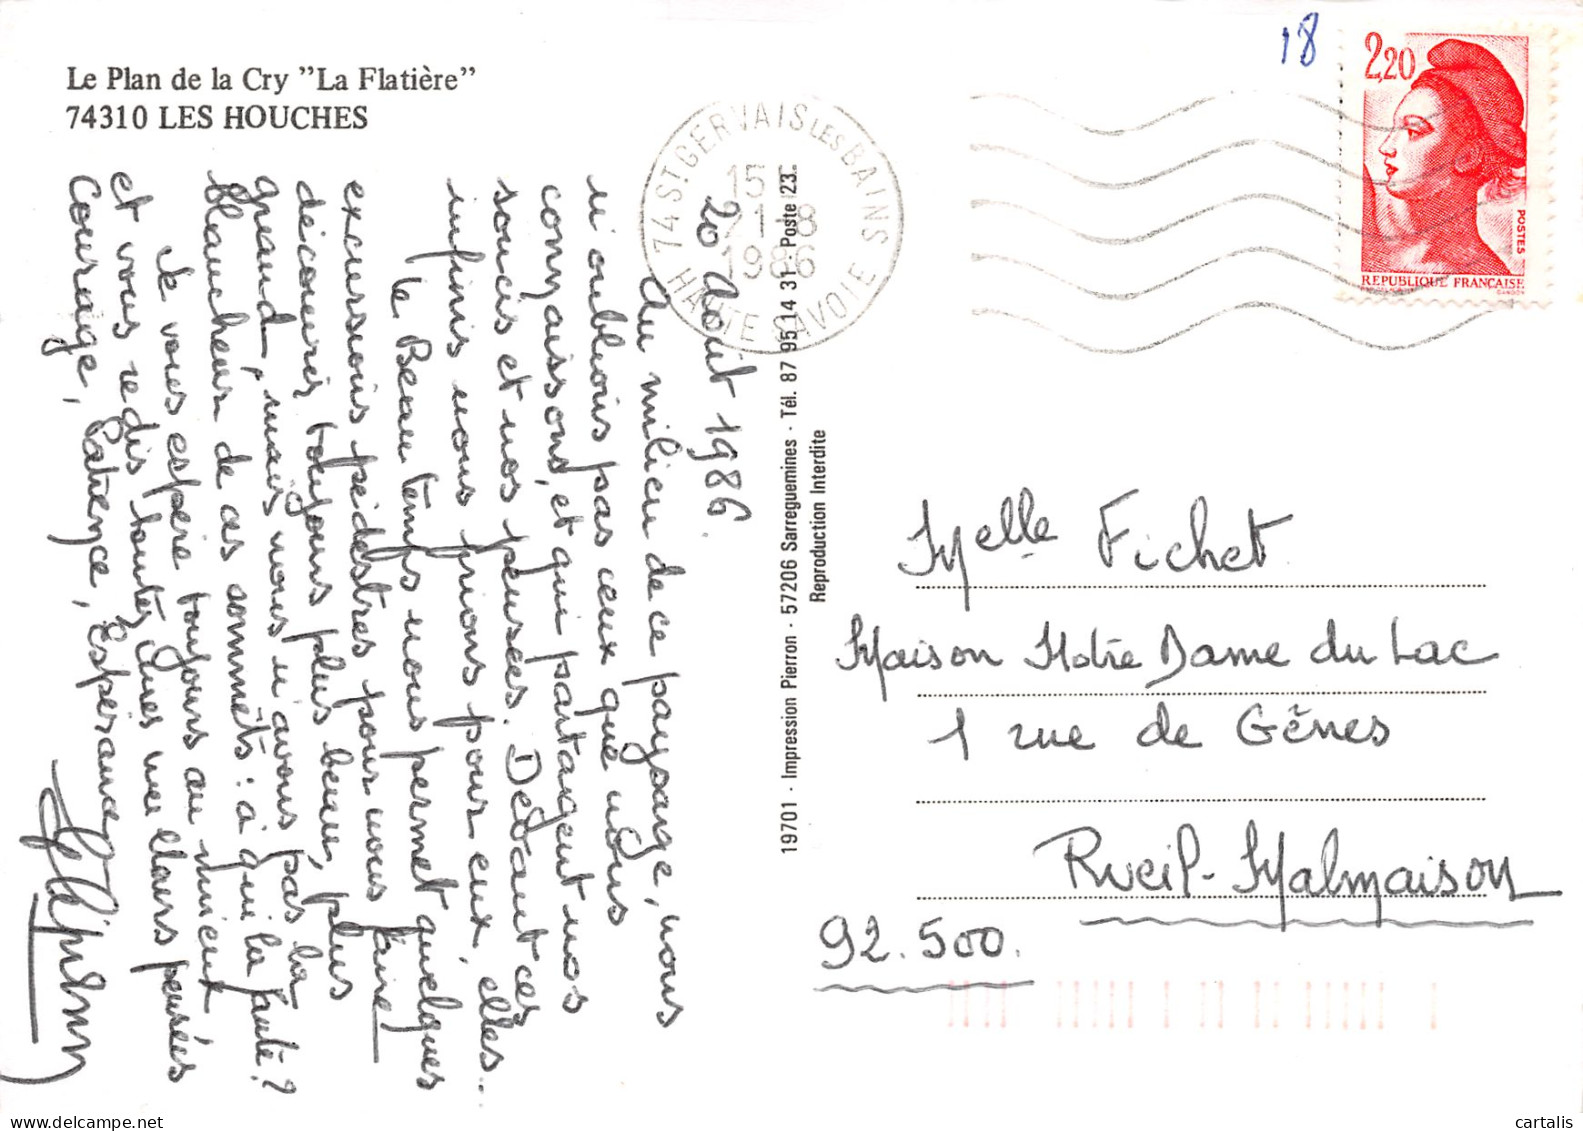 Le Plan de la Cry "La Flatière"
74310 LES HOUCHES
18
2,20
POSTES
REPUBLIQUE FRANÇAISE
GANDON
74 ST. GERVAIS LES BAINS
15
21-8
1986
HAUTE SAVOIE
20 Août 1986.
Au milieu de ce paysage, nous
n'oublions pas ceux que nous
connaissons, et qui partagent nos
soucis et nos pensées. Devant ces
infinis nous prions pour eux, elles..
le Beau temps nous permet quelques
excursions pédestres pour nous faire
découvrir toujours plus beau, plus
grand, mais nous n'avons pas la
blancheur de ces sommets : à qui la faute ?
Je vous espère toujours au mieux
et vous redis toutes mes pensées
Courage, Patience, Espérance
19701 - Impression Pierron - 57206 Sarreguemines - Tél. 87 95 14 31 - Poste 23.
Reproduction Interdite
Melle Fichet
Maison Notre Dame du Lac
1 rue de Gênes
Rueil-Malmaison
92.500.
cartalis